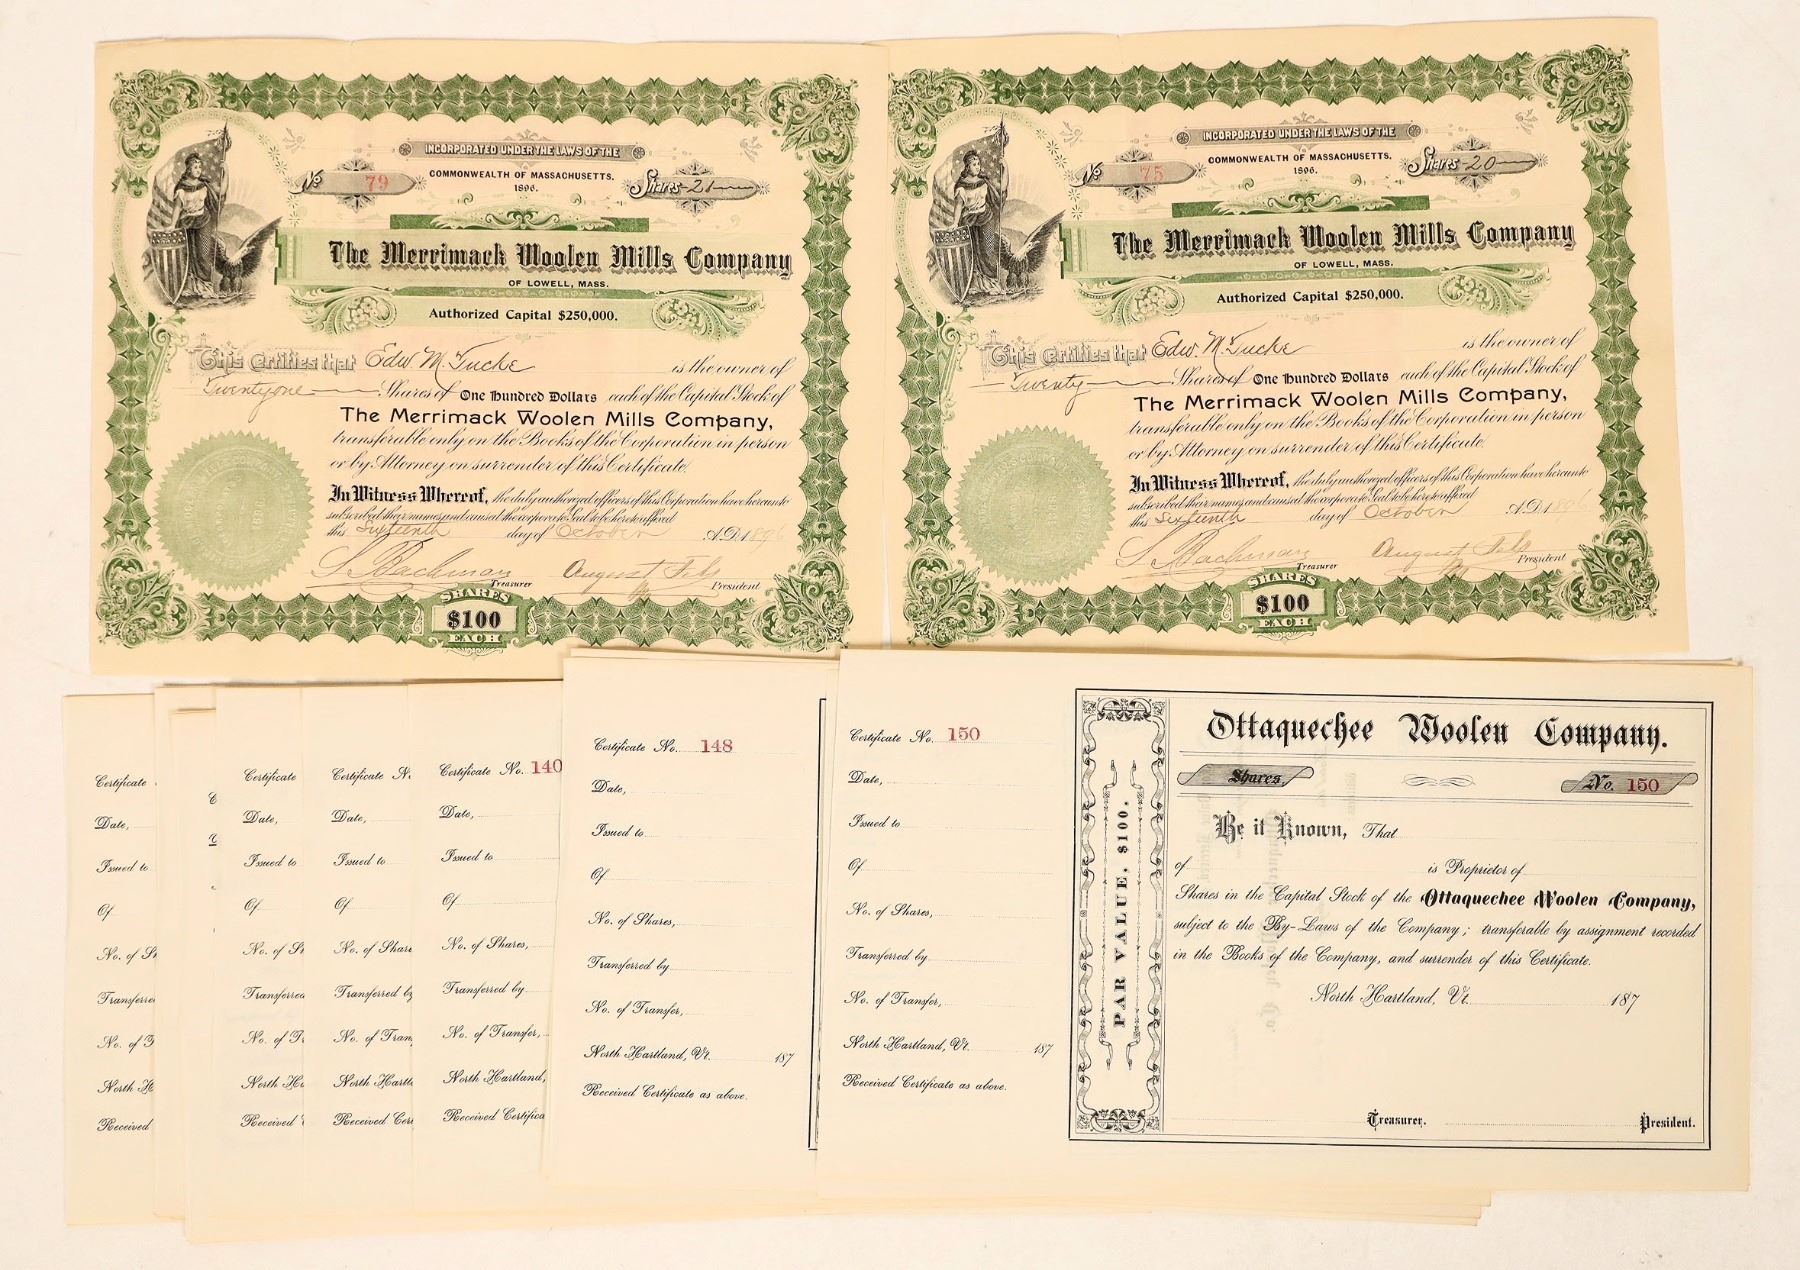 INCORPORATED UNDER THE LAWS OF THE
COMMONWEALTH OF MASSACHUSETTS.
1896.
No 79
Shares 21
The Merrimack Woolen Mills Company
OF LOWELL, MASS.
Authorized Capital $250,000.
This Certifies that Edw. M. Tucke is the owner of
Twentyone Shares of One Hundred Dollars each of the Capital Stock of
The Merrimack Woolen Mills Company,
transferable only on the Books of the Corporation in person
or by Attorney on surrender of this Certificate
In Witness Whereof, the duly authorized officers of this Corporation have hereunto
subscribed their names and caused the corporate Seal to be hereto affixed
this Sixteenth day of October A.D. 1896
Bachman Treasurer August President
SHARES
$100
EACH
INCORPORATED UNDER THE LAWS OF THE
COMMONWEALTH OF MASSACHUSETTS.
1896.
No 75
Shares 20
The Merrimack Woolen Mills Company
OF LOWELL, MASS.
Authorized Capital $250,000.
This Certifies that Edw. M. Tucke is the owner of
Twenty Shares of One Hundred Dollars each of the Capital Stock of
The Merrimack Woolen Mills Company,
transferable only on the Books of the Corporation in person
or by Attorney on surrender of this Certificate
In Witness Whereof, the duly authorized officers of this Corporation have hereunto
subscribed their names and caused the corporate Seal to be hereto affixed
this Sixteenth day of October A.D. 1896
Bachman Treasurer August President
SHARES
$100
EACH
Certificate
Date,
Issued to
Of
No. of Sh
Transferred
No. of T
North H
Received
Certificate
Date,
Issued to
Of
No. of Sh
Transferred
No. of Tr
North Ha
Received
Certificate N
Date,
Issued to
Of
No. of Share
Transferred by
No. of Tran
North Hartl
Received Cert
Certificate No. 140
Date,
Issued to
Of
No. of Shares,
Transferred by
No. of Transfer,
North Hartland,
Received Certifica
Certificate No. 148
Date,
Issued to
Of
No. of Shares,
Transferred by
No. of Transfer,
North Hartland, Vt. 187
Received Certificate as above.
Certificate No. 150
Date,
Issued to
Of
No. of Shares,
Transferred by
No. of Transfer,
North Hartland, Vt. 187
Received Certificate as above.
PAR VALUE, $100.
Ottaquechee Woolen Company.
Shares, No. 150
Be it Known, That
of is Proprietor of
Shares in the Capital Stock of the Ottaquechee Woolen Company,
subject to the By-Laws of the Company; transferable by assignment recorded
in the Books of the Company, and surrender of this Certificate.
North Hartland, Vt. 187
Treasurer. President.